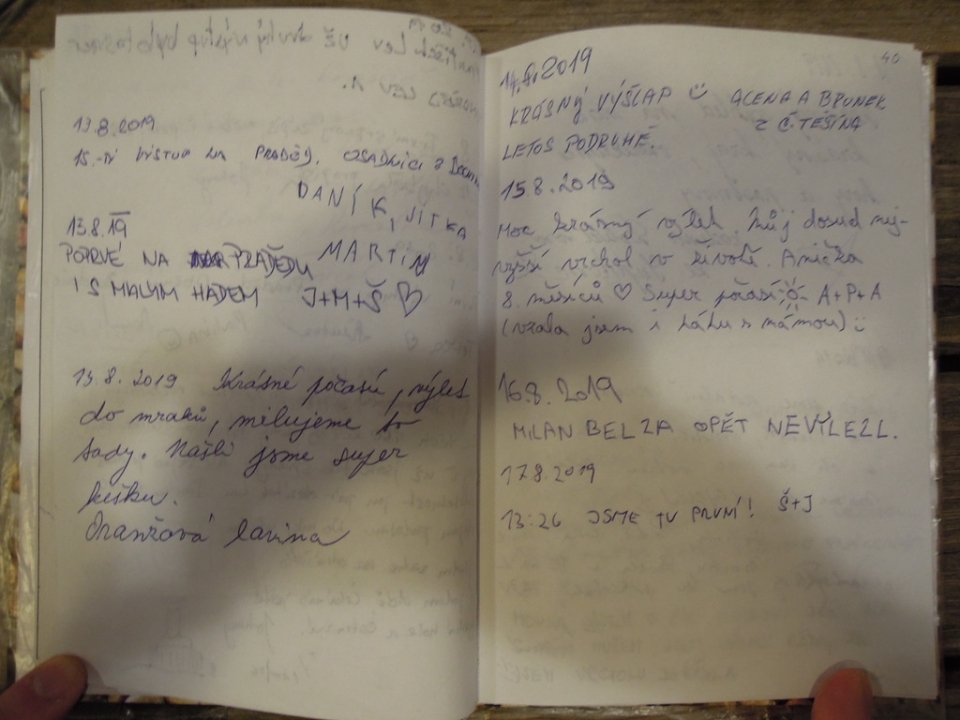 13.8.2019
15.-TÝ VÝSTUP NA PRADĚD. OSADNÍCI Z
DANÍK, JITKA
MARTIN
13.8.19
POPRVÉ NA PRADĚDU
I S MALÝM HADEM J+M+Š ♡
13.8.2019 Krásné počasí, výlet
do mraků, milujeme to
tady. Našli jsme super
kešku.
Oranžová lavina
40
14.8.2019
KRÁSNÝ VÝŠLAP ALENA A BRUNEK
Z Č. TĚŠÍNA
LETOS PODRUHÉ.
15.8.2019
Moc krásný výlet. Můj dosud nej-
vyšší vrchol v životě. Anička
8. měsíců ♡ Super počasí A+P+A
(vzala jsem i tátu s mámou)
16.8.2019
MILAN BELZA OPĚT NEVYLEZL.
17.8.2019
13:26 JSME TU PRVNÍ! Š+J